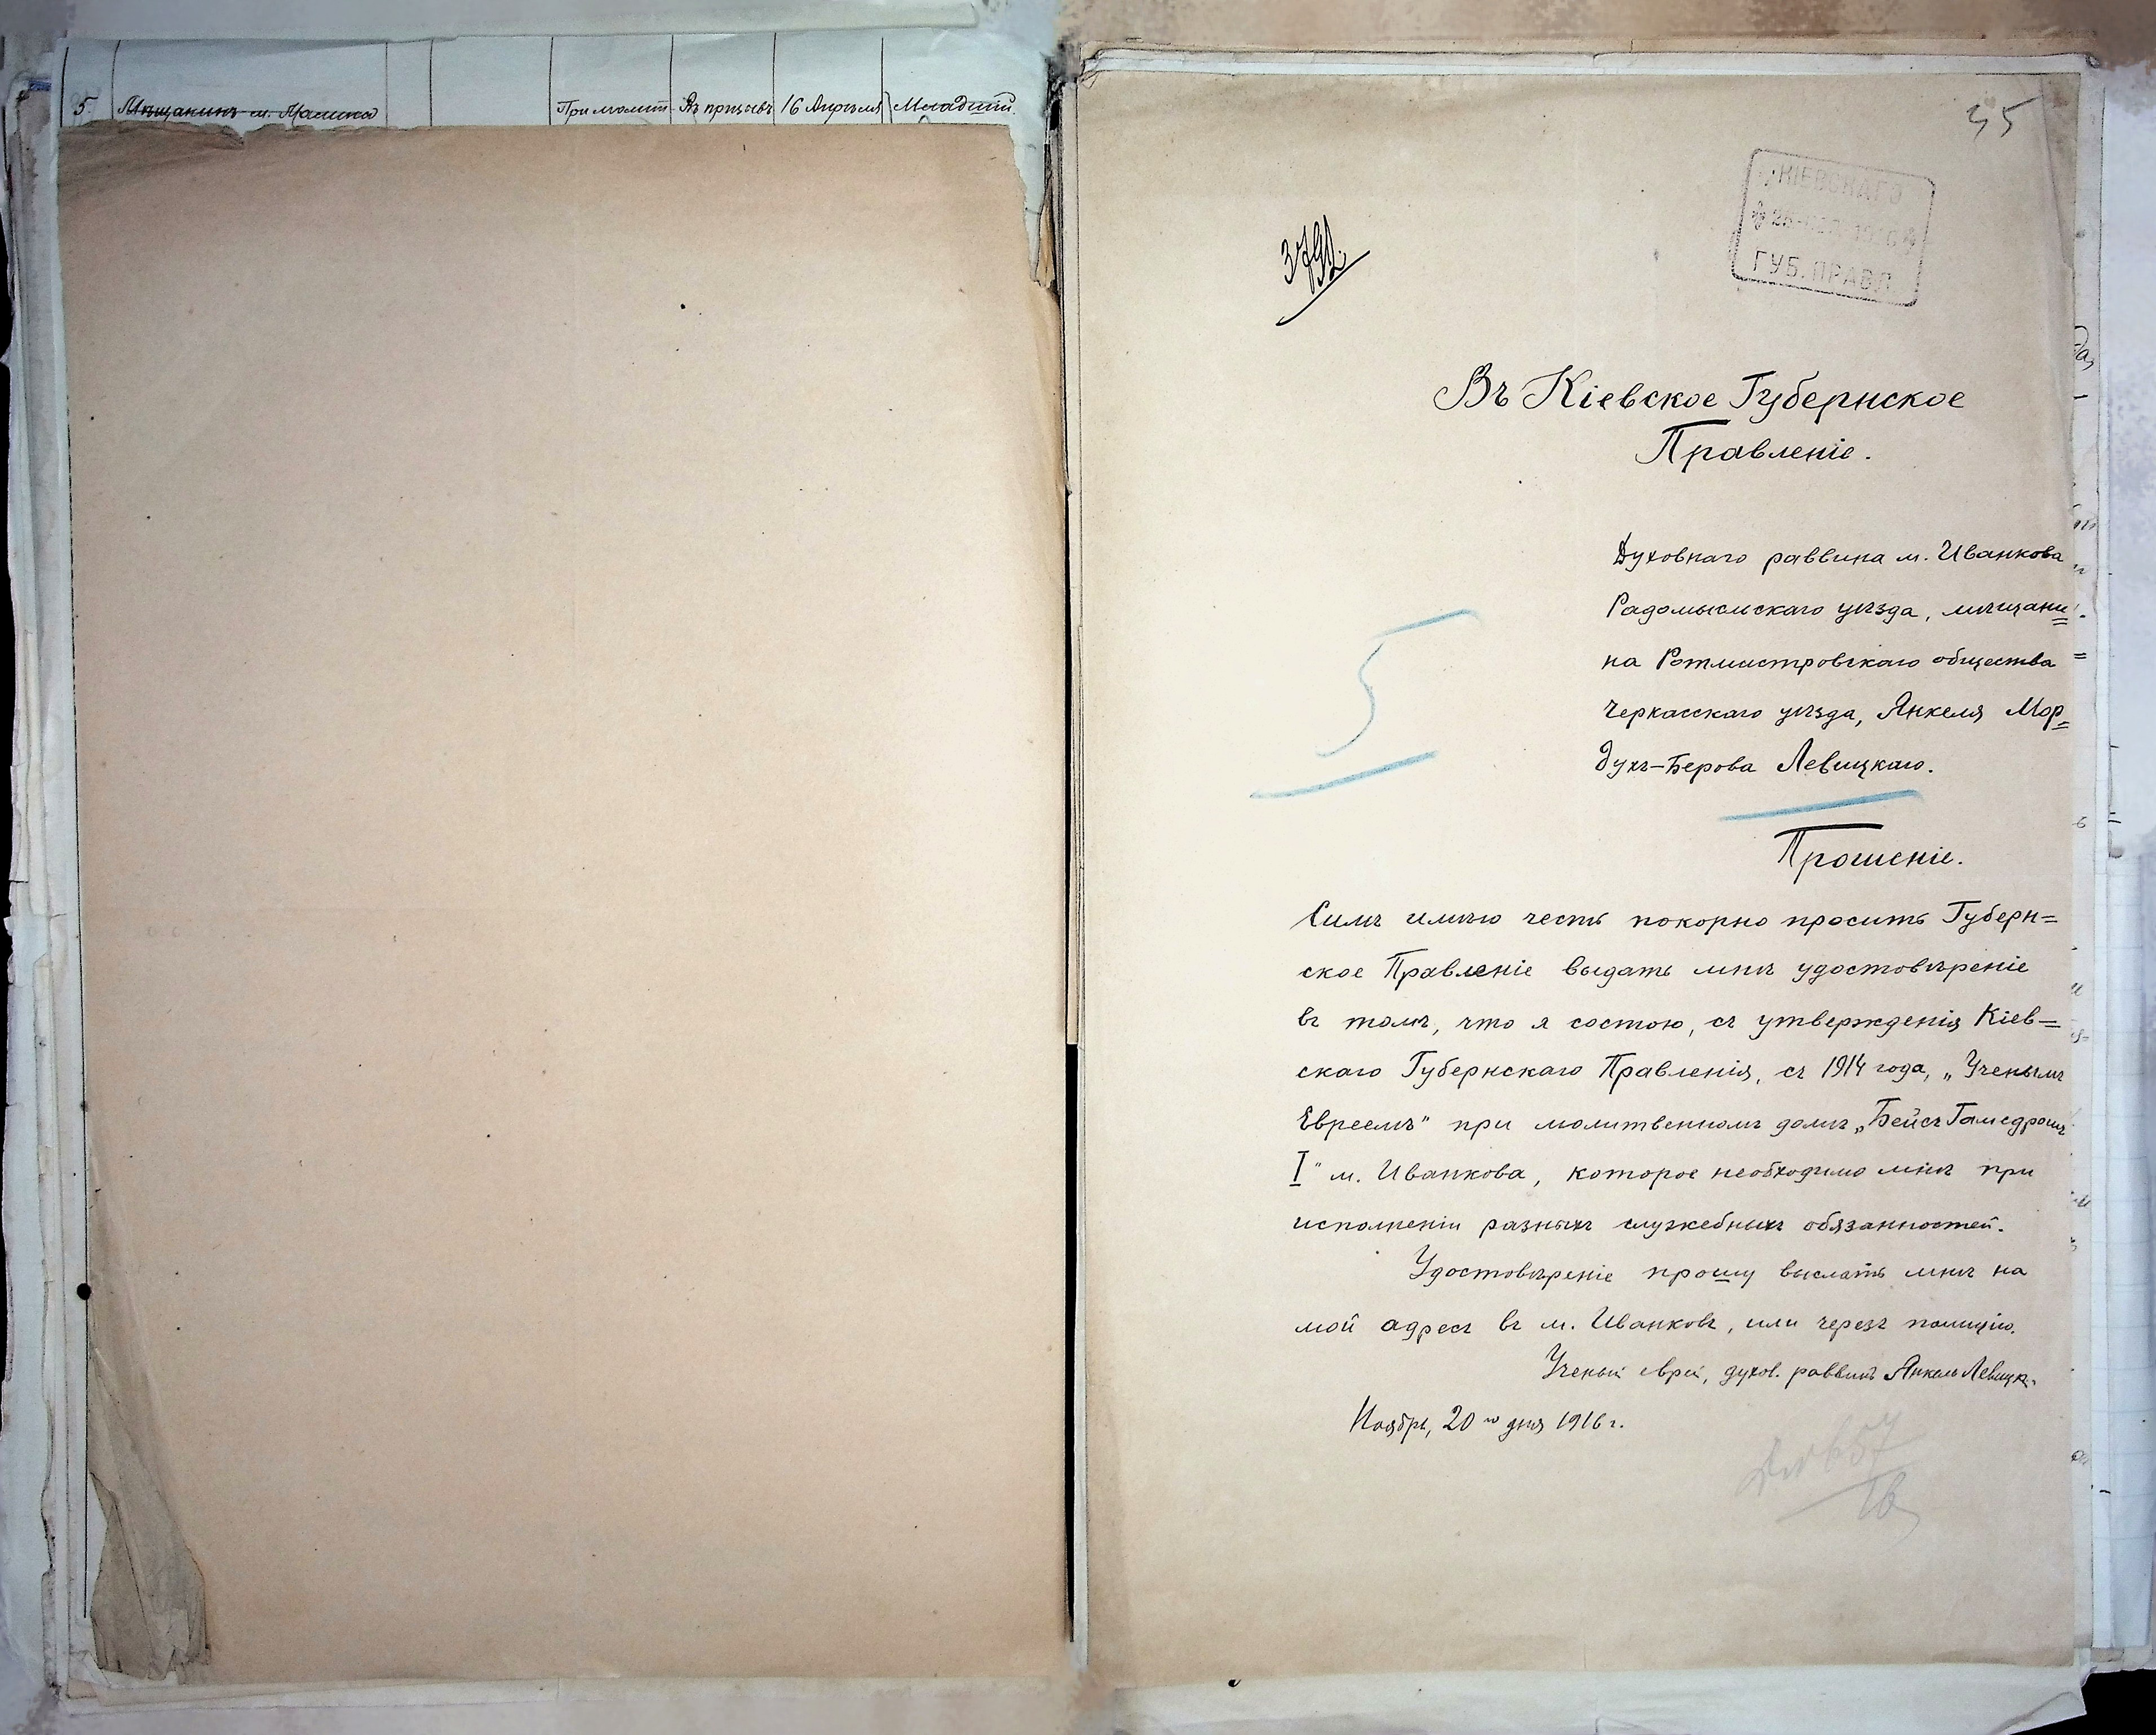 5. Мѣщанинъ м. Малина
При молит-
Въ призывъ
16 Апрѣля
Младшій.
35
КІЕВСКАГО
ГУБ. ПРАВЛ
Въ Кіевское Губернское
Правленіе.
Духовнаго раввина м. Иванкова
Радомысльскаго уѣзда, мѣщани=
на Ротмистровскаго общества
Черкасскаго уѣзда, Янкеля Мор=
духъ-Берова Левицкаго.
5
Прошеніе.
Симъ имѣю честь покорно просить Губерн=
ское Правленіе выдать мнѣ удостовѣреніе
въ томъ, что я состою, съ утвержденія Кіев=
скаго Губернскаго Правленія, съ 1914 года, „Ученымъ
Евреемъ" при молитвенномъ домѣ „Бейсъ Гамедрошъ
I" м. Иванкова, которое необходимо мнѣ при
исполненіи разныхъ служебныхъ обязанностей.
Удостовѣреніе прошу выслать мнѣ на
мой адресъ въ м. Иванковъ, или черезъ полицію.
Ученый еврей, духов. раввинъ Янкель Левицк.
Ноябрь, 20 го дня 1916 г.